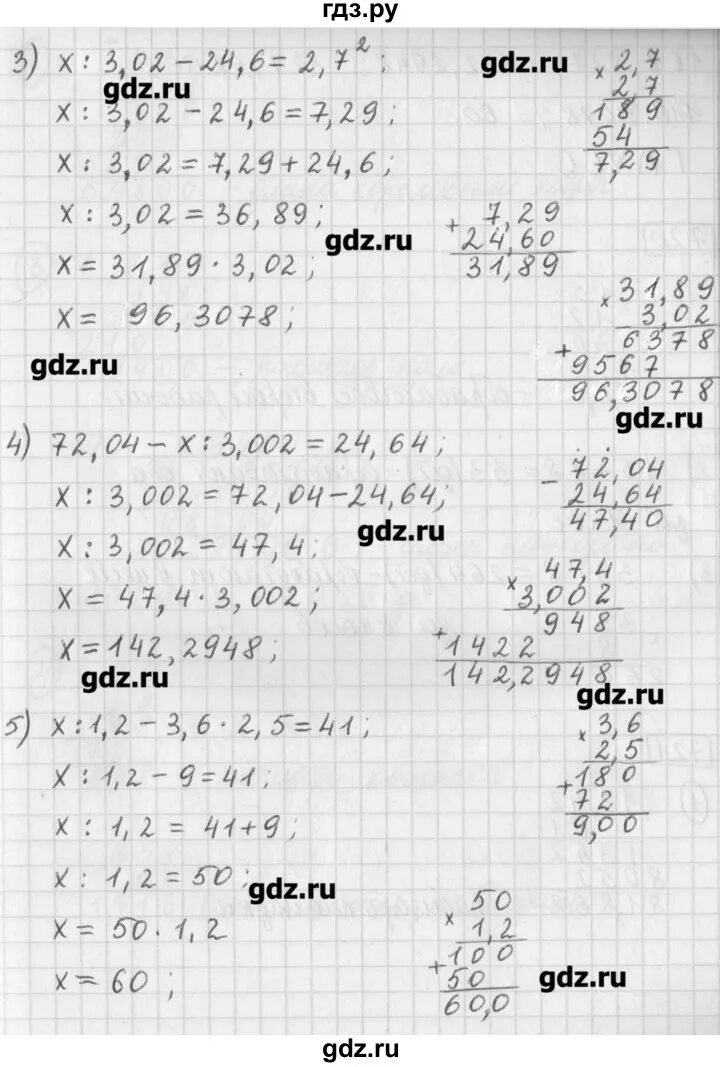 гдз.ру
3) x : 3,02 - 24,6 = 2,7²
gdz.ru
x : 3,02 - 24,6 = 7,29;
x : 3,02 = 7,29 + 24,6;
x : 3,02 = 36,89;
x = 31,89 · 3,02;
x = 96,3078;
gdz.ru
gdz.ru
× 2,7
2,7
189
54
7,29
gdz.ru
+ 7,29
24,60
31,89
× 31,89
3,02
6378
+ 9567
96,3078
gdz.ru
4) 72,04 - x : 3,002 = 24,64;
x : 3,002 = 72,04 - 24,64;
x : 3,002 = 47,4;
x = 47,4 · 3,002;
x = 142,2948;
gdz.ru
gdz.ru
- 72,04
24,64
47,40
× 47,4
3,002
948
+ 1422
142,2948
gdz.ru
5) x : 1,2 - 3,6 · 2,5 = 41;
x : 1,2 - 9 = 41;
x : 1,2 = 41 + 9;
x : 1,2 = 50;
x = 50 · 1,2
x = 60;
gdz.ru
× 3,6
2,5
+ 180
72
9,00
× 50
1,2
100
+ 50
60,0
gdz.ru
gdz.ru